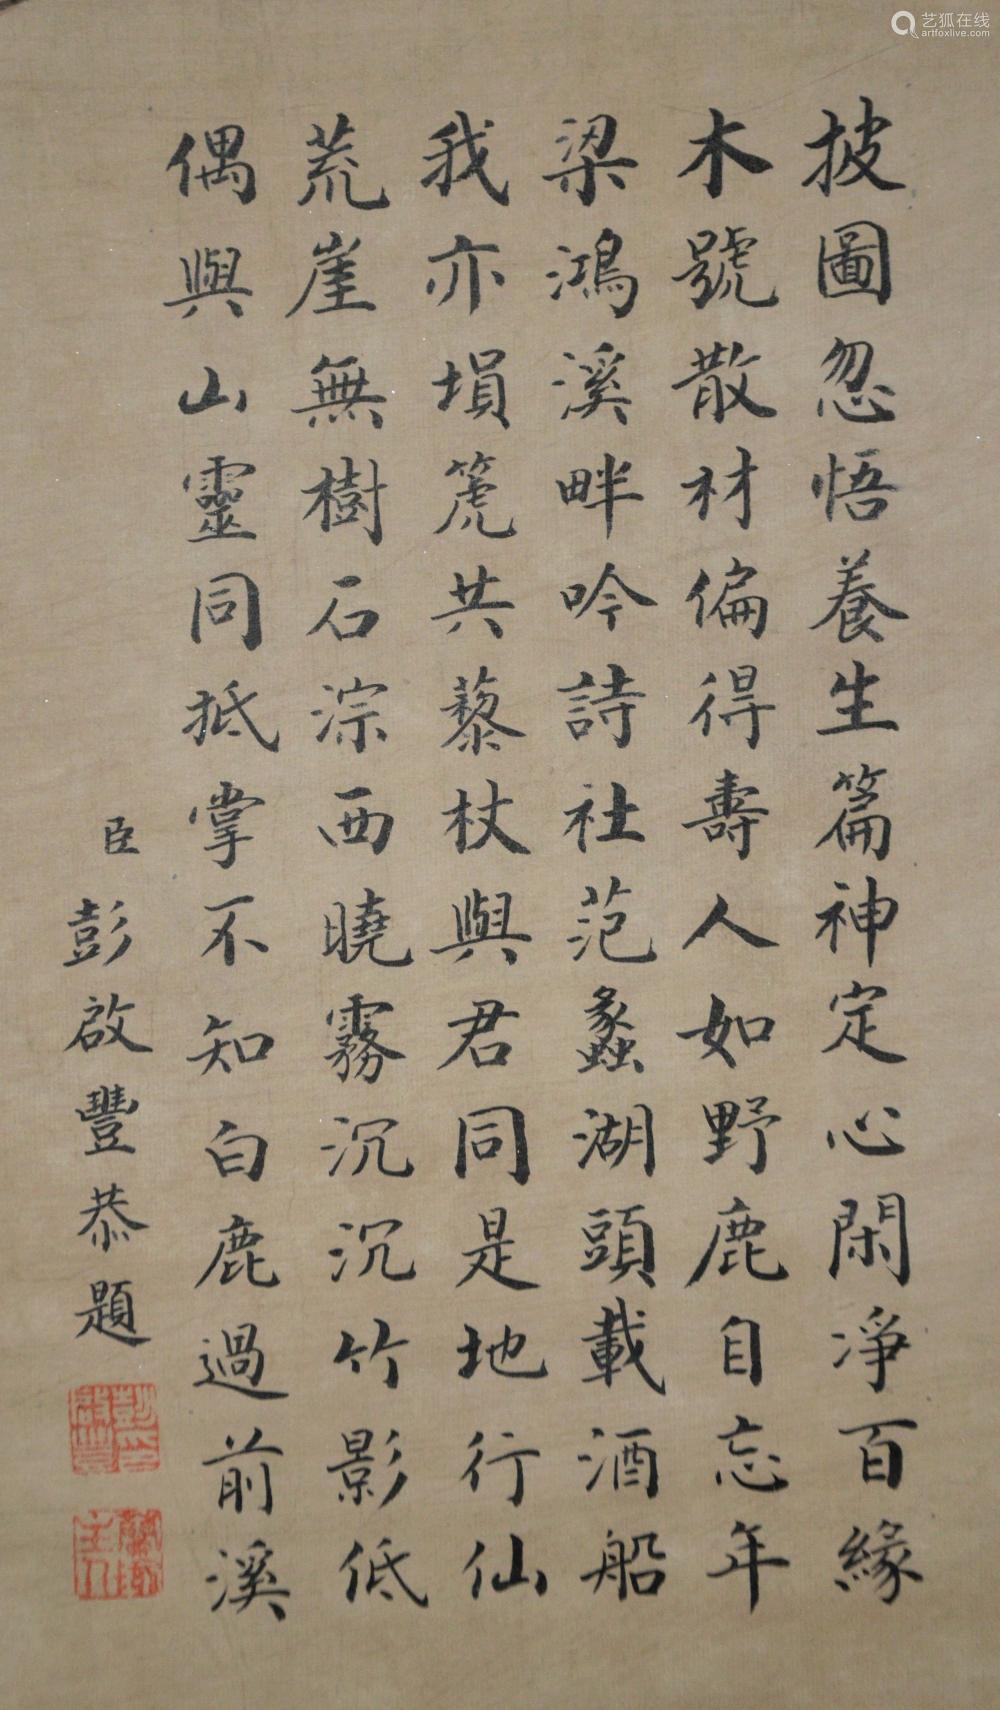 披圖忽悟養生篇神定心閑淨百緣
木號散材偏得壽人如野鹿自忘年
梁鴻溪畔吟詩社范蠡湖頭載酒船
我亦塤箎共藜杖與君同是地行仙
荒崖無樹石淙西曉霧沉沉竹影低
偶與山靈同抵掌不知白鹿過前溪
臣彭啟豐恭題
艺狐在线
artfoxlive.com